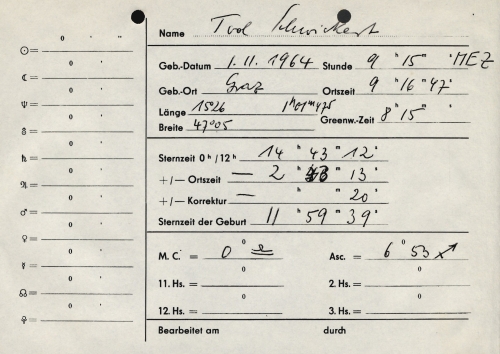 Name Tvol Schwickert
Geb.-Datum 1. 11. 1964 Stunde 9 h 15 m MEZ
Geb.-Ort Graz Ortszeit 9 h 16 m 47 s
Länge 15°26 1h 01m 47s Greenw.-Zeit 8 h 15 m s
Breite 47°05
Sternzeit 0 h / 12 h 14 h 43 m 12 s
+/— Ortszeit — 2 h 43 m 13 s
+/— Korrektur — h m 20 s
Sternzeit der Geburt 11 h 59 m 39 s
M. C. = 0 ° ♎ Asc. = 6 ° 53 ♐
11. Hs. = ° 2. Hs. = °
12. Hs. = ° 3. Hs. = °
Bearbeitet am durch
0 ' "
☉=
☾=
♆=
♅=
♄=
♃=
♂=
♀=
☿=
☊=